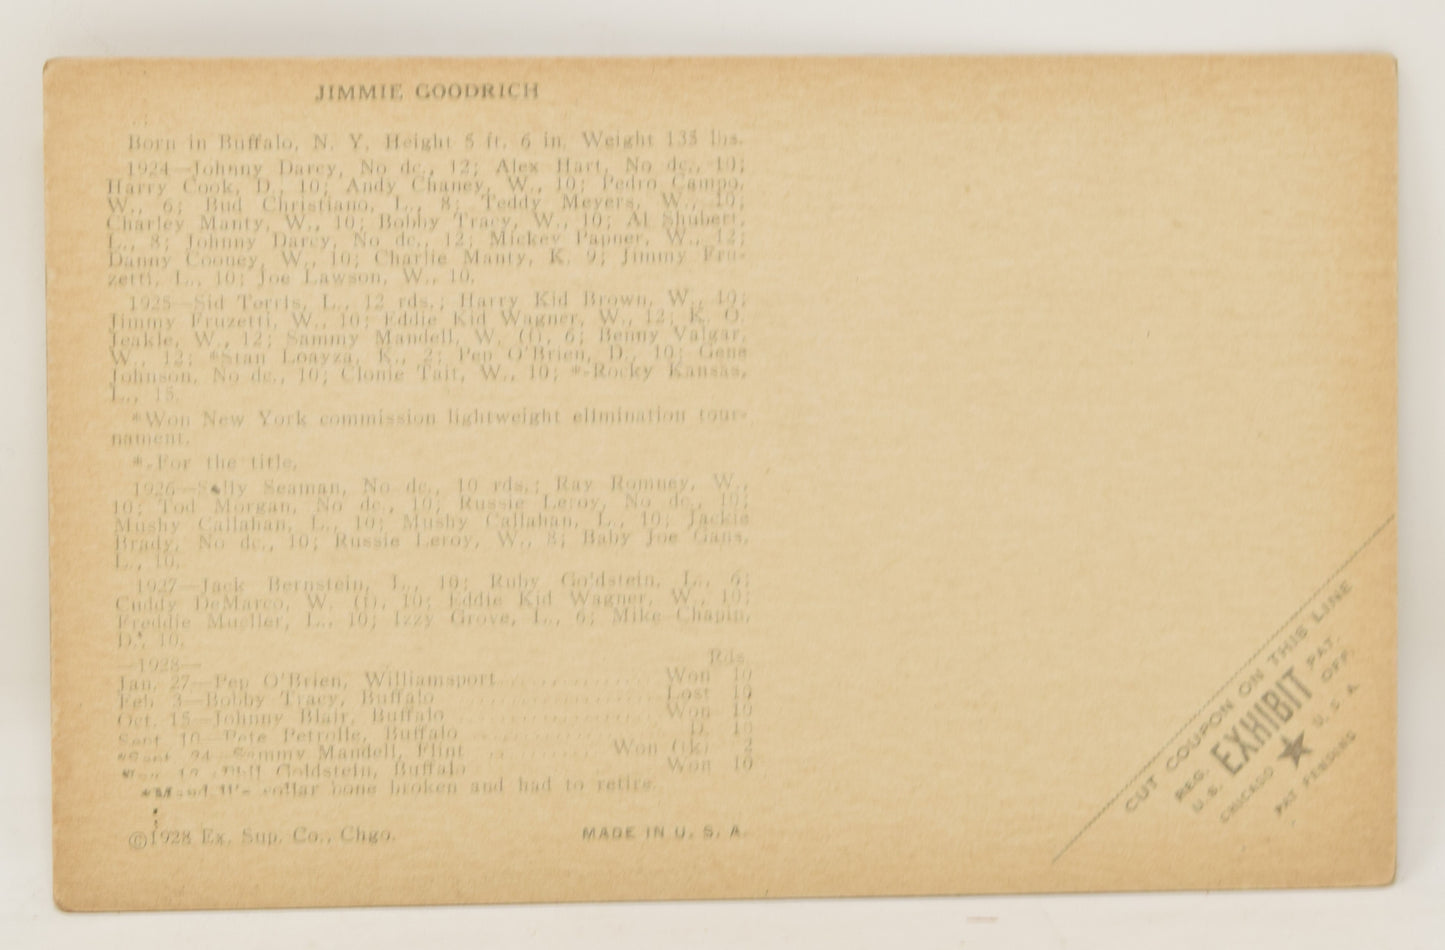 JIMMIE GOODRICH
Born in Buffalo, N. Y. Height 5 ft. 6 in. Weight 135 lbs.
1924—Johnny Darcy, No dc., 12; Alex Hart, No dc., 10;
Harry Cook, D., 10; Andy Chaney, W., 10; Pedro Campo,
W., 6; Bud Christiano, L., 8; Teddy Meyers, W., 10;
Charley Manty, W., 10; Bobby Tracy, W., 10; Al Shubert,
L., 8; Johnny Darcy, No dc., 12; Mickey Papner, W., 12;
Danny Cooney, W., 10; Charlie Manty, K. 9; Jimmy Fru-
zetti, L., 10; Joe Lawson, W., 10.
1925—Sid Terris, L., 12 rds.; Harry Kid Brown, W., 10;
Jimmy Fruzetti, W., 10; Eddie Kid Wagner, W., 12; K. O.
Jeakle, W., 12; Sammy Mandell, W. (f), 6; Benny Valgar,
W., 12; *Stan Loayza, K., 2; Pep O'Brien, D., 10; Gene
Johnson, No dc., 10; Clonie Tait, W., 10; *-Rocky Kansas,
L., 15.
*Won New York commission lightweight elimination tour-
nament.
*-For the title.
1926—Solly Seaman, No dc., 10 rds.; Ray Romney, W.,
10; Tod Morgan, No dc., 10; Russie Leroy, No dc., 10;
Mushy Callahan, L., 10; Mushy Callahan, L., 10; Jackie
Brady, No dc., 10; Russie Leroy, W., 8; Baby Joe Gans,
L., 10.
1927—Jack Bernstein, L., 10; Ruby Goldstein, L., 6;
Cuddy DeMarco, W. (f), 10; Eddie Kid Wagner, W., 10;
Freddie Mueller, L., 10; Izzy Grove, L., 6; Mike Chapin,
D., 10.
—1928— Rds.
Jan. 27—Pep O'Brien, Williamsport Won 10
Feb. 3—Bobby Tracy, Buffalo Lost 10
Oct. 15—Johnny Blair, Buffalo Won 10
Sept. 10—Pete Petrolle, Buffalo D. 10
*Sept. 24—Sammy Mandell, Flint Won (tk) 2
Goldstein, Buffalo Won 10
collar bone broken and had to retire.
©1928 Ex. Sup. Co., Chgo. MADE IN U. S. A.
CUT COUPON ON THIS LINE
REG. EXHIBIT PAT.
U.S. OFF.
CHICAGO ★ U. S. A.
PAT PENDING